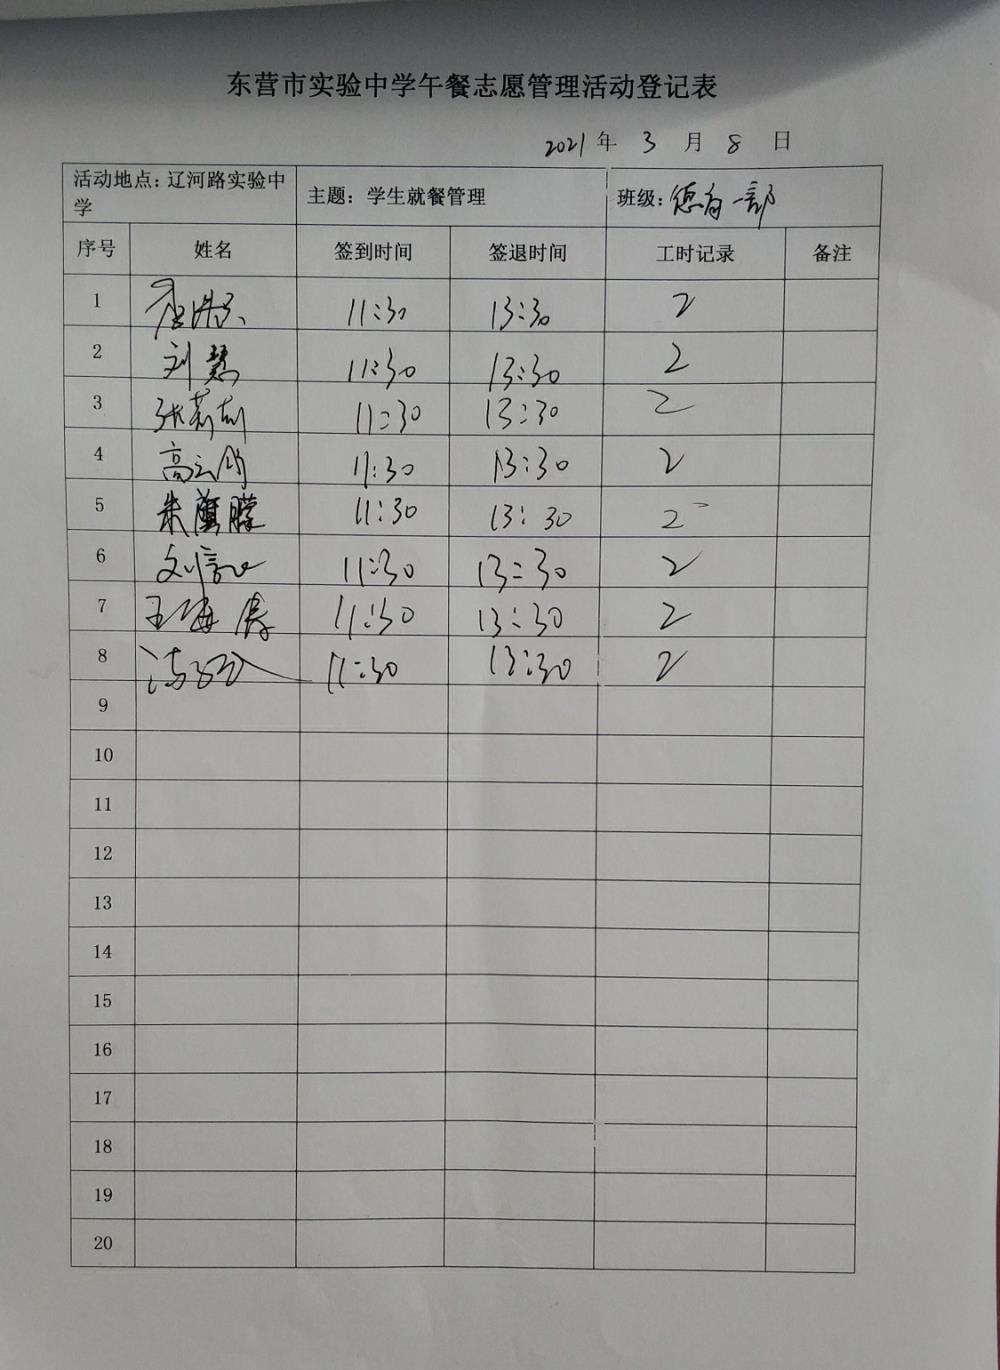 东营市实验中学午餐志愿管理活动登记表
2021年 3 月 8 日
活动地点：辽河路实验中学 主题：学生就餐管理 班级：德育一部
序号 姓名 签到时间 签退时间 工时记录 备注
1 11:30 13:30 2
2 刘慧 11:30 13:30 2
3 11:30 13:30 2
4 11:30 13:30 2
5 11:30 13:30 2
6 11:30 13:30 2
7 11:30 13:30 2
8 11:30 13:30 2
9
10
11
12
13
14
15
16
17
18
19
20